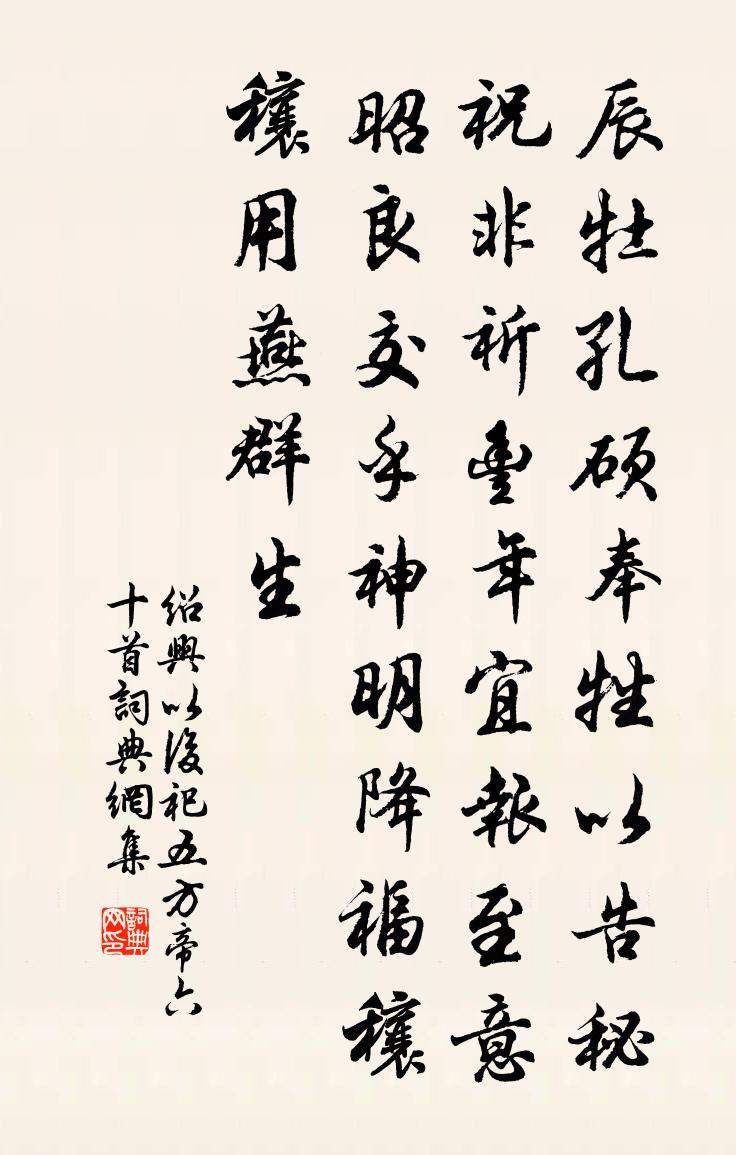 辰牡孔硕奉牲以告秘
祝非祈豐年宜報至意
昭良交乎神明降福穰
穰用燕群生
绍興以後祀五方帝六
十首詞典網集
詞典网印